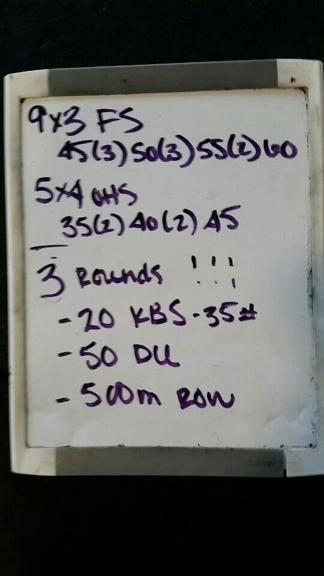 9x3 FS
45(3) 50(3) 55(2) 60
5x4 OHS
35(2) 40(2) 45
3 Rounds !!!
- 20 KBS - 35#
- 50 DU
- 500m Row